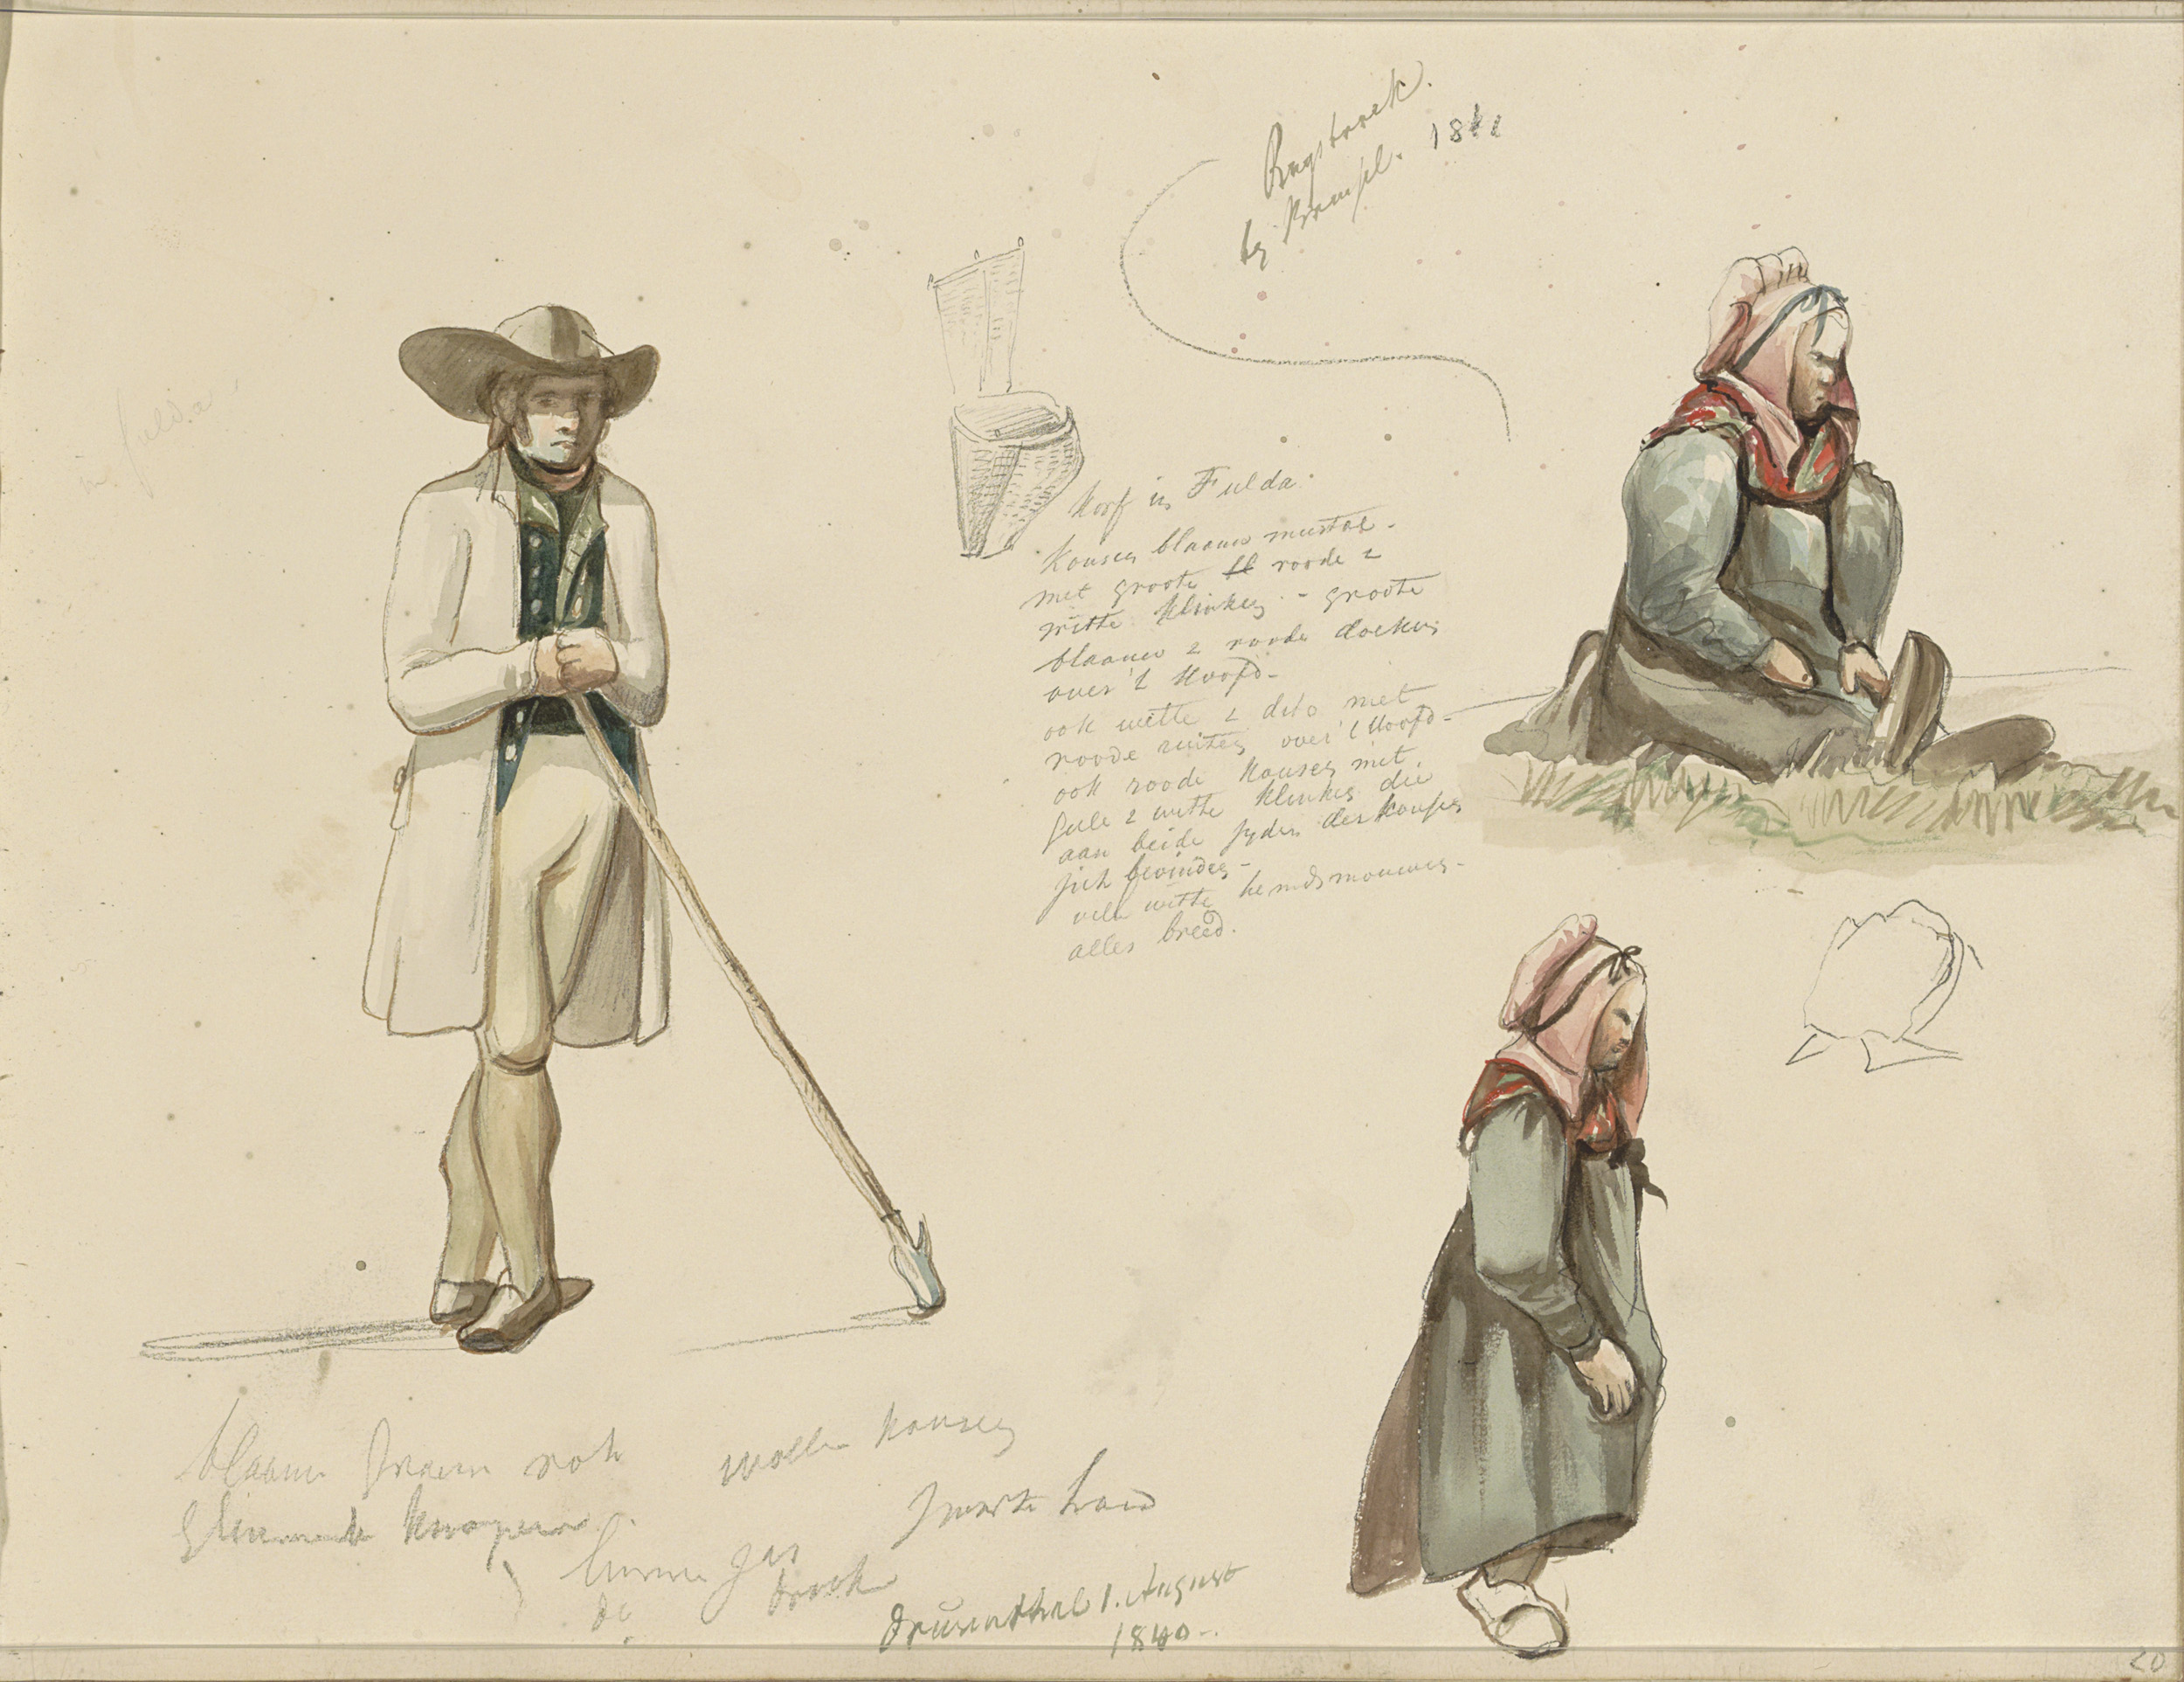 by Brussel. 1841
m. fulda
Korf in Fulda.
Kousen blaauw meestal -
met groote roode &
witte klinken - groote
blaauw & roode doeken
over 't hoofd -
ook witte & dito met
roode ruiten over 't hoofd -
ook roode kousen met
geele & witte klinken die
aan beide zyden der kousen
zich bevinden -
vele witte hemdsmouwen -
alles breed.
blaauw rok
wolle kousen
knopen
zwarte band
linnen jas
do broek
1. August
1840 -.
20